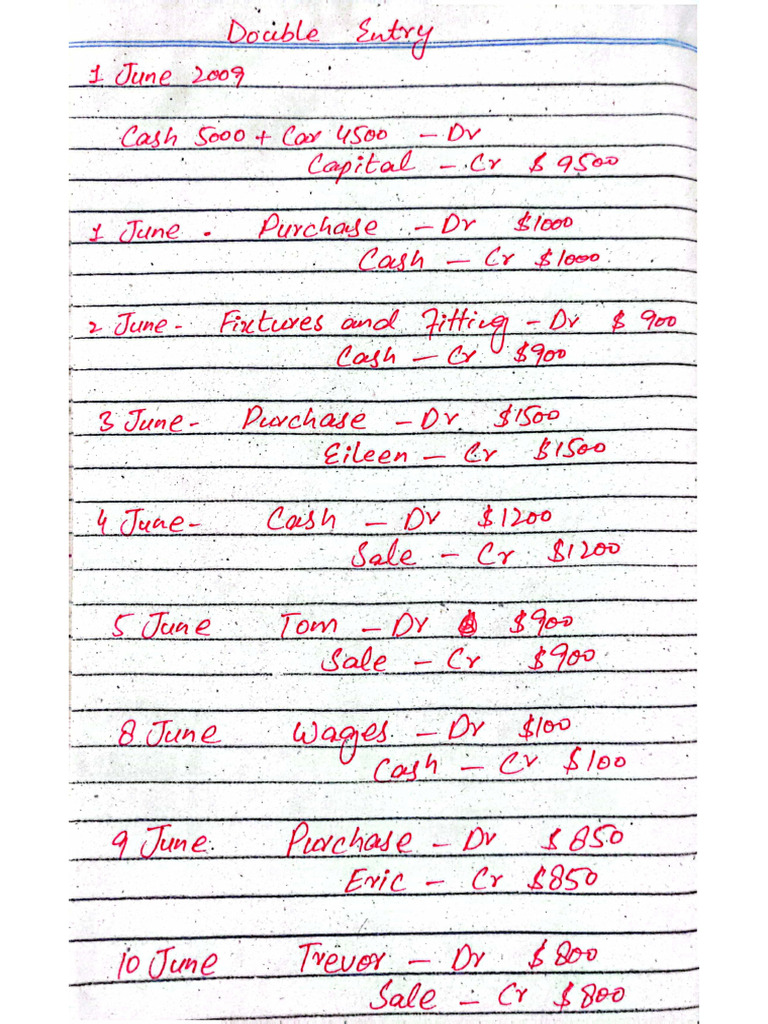 Double Entry
1 June 2009
Cash 5000 + Car 4500 - Dr
Capital - Cr $ 9500
1 June. Purchase - Dr $1000
Cash - Cr $1000
2 June- Fixtures and Fitting - Dr $ 900
Cash - Cr $900
3 June- Purchase - Dr. $1500
Eileen - Cr $1500
4 June- Cash - Dr $1200
Sale - Cr $1200
5 June Tom - Dr $900
Sale - Cr $900
8 June Wages - Dr $100
Cash - Cr $100
9 June. Purchase - Dr $850
Eric - Cr $850
10 June Trevor - Dr $800
Sale - Cr $800